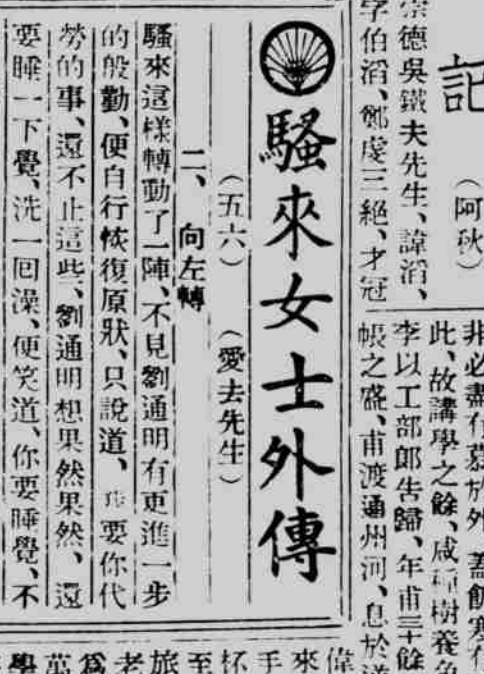 記
（阿秋）
崇德吳鐵夫先生、諱滔、
字伯滔、鄭虔三絕、才冠
此、故講學之餘、咸種樹養魚
李以工部郎告歸、年甫三十餘
帳之盛、甫渡通州河、息於逆
騷來女士外傳
（五六）　（愛去先生）
二、　向左轉
騷來這樣轉動了一陣、不見劉通明有更進一步
的殷勤、便自行恢復原狀、只說道、要你代
勞的事、還不止這些、劉通明想果然果然、還
要睡一下覺、洗一回澡、便笑道、你要睡覺、不
偉來手杯至旅老爲萬學